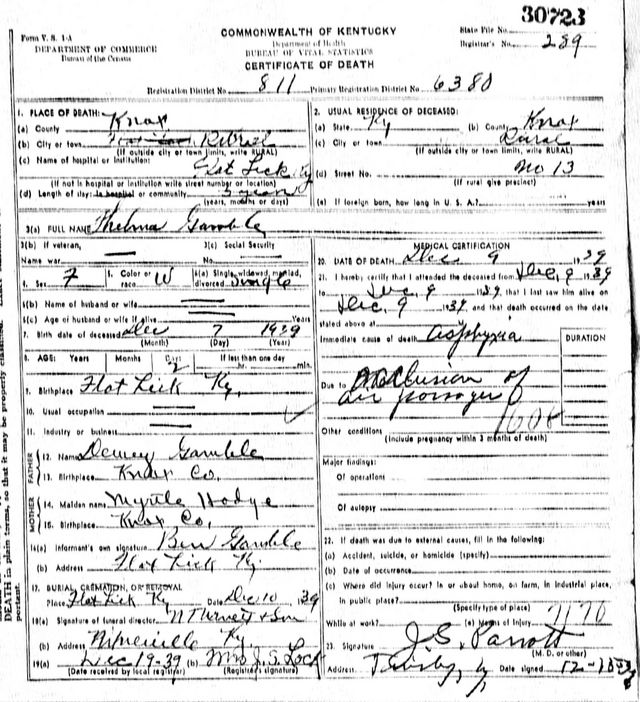 30723
Form V. S. 1-A
DEPARTMENT OF COMMERCE
Bureau of the Census
COMMONWEALTH OF KENTUCKY
Department of Health
BUREAU OF VITAL STATISTICS
CERTIFICATE OF DEATH
State File No.
Registrar's No. 289
Registration District No. 811 Primary Registration District No. 6380
1. PLACE OF DEATH:
(a) County Knox
(b) City or town Rural
(If outside city or town limits, write RURAL)
(c) Name of hospital or institution:
Flat Lick Ky
(If not in hospital or institution write street number or location)
(d) Length of stay: In hospital or community
(years, months or days)
2. USUAL RESIDENCE OF DECEASED:
(a) State Ky (b) County Knox
(c) City or town Rural
(If outside city or town limits, write RURAL)
(d) Street No. No 13
(If rural give precinct)
(e) If foreign born, how long in U. S. A.? years
3(a) FULL NAME Thelma Gamble
3(b) If veteran,
Name war
3(c) Social Security
No.
4. Sex F
5. Color or race W
6(a) Single, widowed, married, divorced Single
6(b) Name of husband or wife
6(c) Age of husband or wife if alive Years
7. Birth date of deceased Dec 7 1939
(Month) (Day) (Year)
8. AGE: Years Months Days If less than one day
2 hr. min.
9. Birthplace Flat Lick Ky.
10. Usual occupation
11. Industry or business
FATHER
12. Name Dewey Gamble
13. Birthplace Knox Co.
MOTHER
14. Maiden name Myrtle Hodge
15. Birthplace Knox Co.
16(a) Informant's own signature Ben Gamble
(b) Address Flat Lick Ky.
17. BURIAL, CREMATION, OR REMOVAL
Place Flat Lick Ky Date Dec 10 1939
18(a) Signature of funeral director & Son
(b) Address Ky.
19(a) Dec 19-39 (b) Mrs J. S. Lock
(Date received by local registrar) (Registrar's signature)
MEDICAL CERTIFICATION
20. DATE OF DEATH Dec 9 1939
21. I hereby certify that I attended the deceased from Dec. 9 1939
to Dec. 9 1939, that I last saw him alive on
Dec. 9 1939, and that death occurred on the date
stated above at
Immediate cause of death asphyxia
DURATION
Due to occlusion of
air passages
Other conditions
(Include pregnancy within 3 months of death)
Major findings:
Of operations
Of autopsy
22. If death was due to external causes, fill in the following:
(a) Accident, suicide, or homicide (specify)
(b) Date of occurrence
(c) Where did injury occur? In or about home, on farm, in industrial place,
in public place?
(Specify type of place)
While at work? (e) Means of Injury
23. Signature J. S. Parrott
(M. D. or other)
Address Date signed
DEATH in plain terms, so that it may be properly classified.
portant.